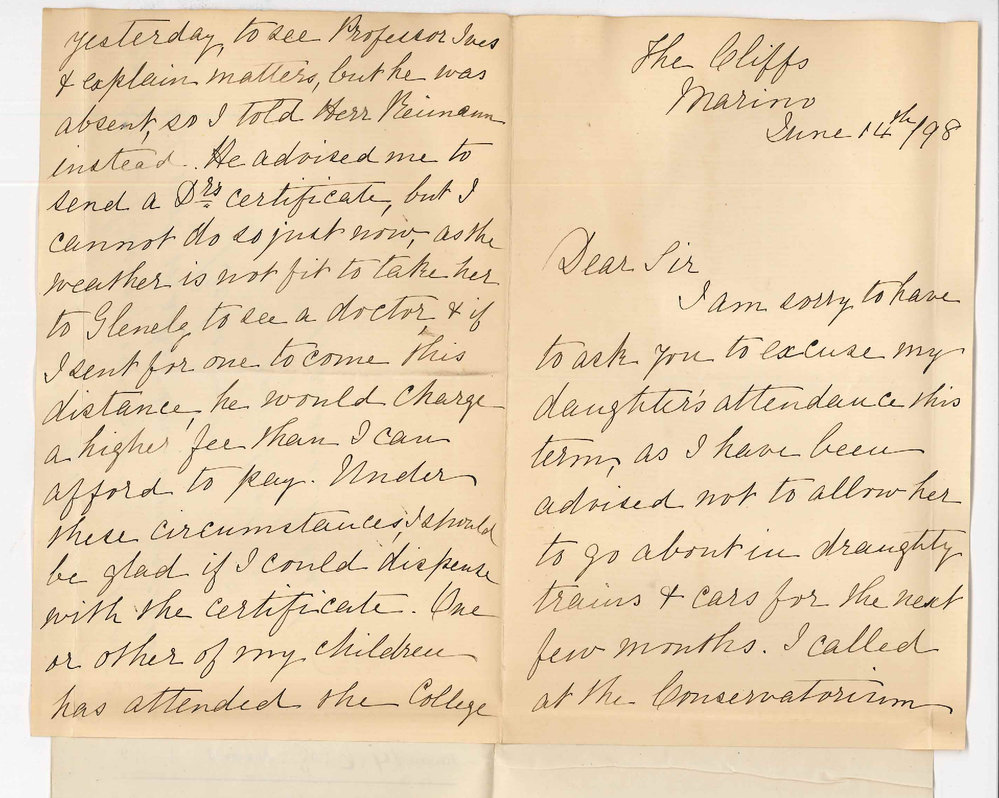 The Cliffs
Marino
June 14th/98
Dear Sir
I am sorry to have
to ask you to excuse my
daughter's attendance this
term, as I have been
advised not to allow her
to go about in draughty
trains & cars for the next
few months. I called
at the Conservatorium
yesterday, to see Professor Ives
& explain matters, but he was
absent, so I told Herr Reimann
instead. He advised me to
send a Drs certificate, but I
cannot do so just now, as the
weather is not fit to take her
to Glenelg to see a doctor, & if
I sent for one to come this
distance, he would charge
a higher fee than I can
afford to pay. Under
these circumstances, I should
be glad if I could dispense
with the certificate. One
or other of my children
has attended the College